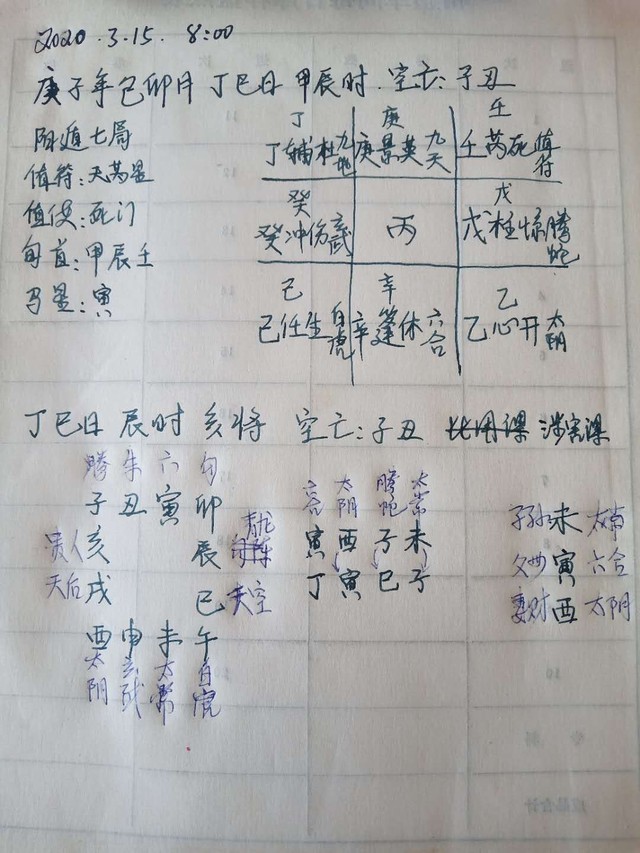 2020.3.15. 8:00
庚子年己卯月 丁巳日 甲辰时. 空亡:子丑
阳遁七局
值符:天芮星
值使:死门
旬首:甲辰壬
马星:寅
丁 庚 壬
丁辅杜九地 庚景英九天 壬芮死值符
癸 戊
癸冲伤玄武 丙 戊柱惊腾蛇
己 辛 乙
己任生白虎 辛蓬休六合 乙心开太阴
丁巳日 辰时 亥将 空亡:子丑 涉害课
腾 朱 六 勾
子 丑 寅 卯
贵人 亥 辰 青龙
天后 戌 巳 天空
酉 申 未 午
太阴 玄武 太常 白虎
六合 太阴 腾蛇 太常
寅 酉 子 未
丁 寅 巳 子
子孙 未 太常
父母 寅 六合
妻财 酉 太阴